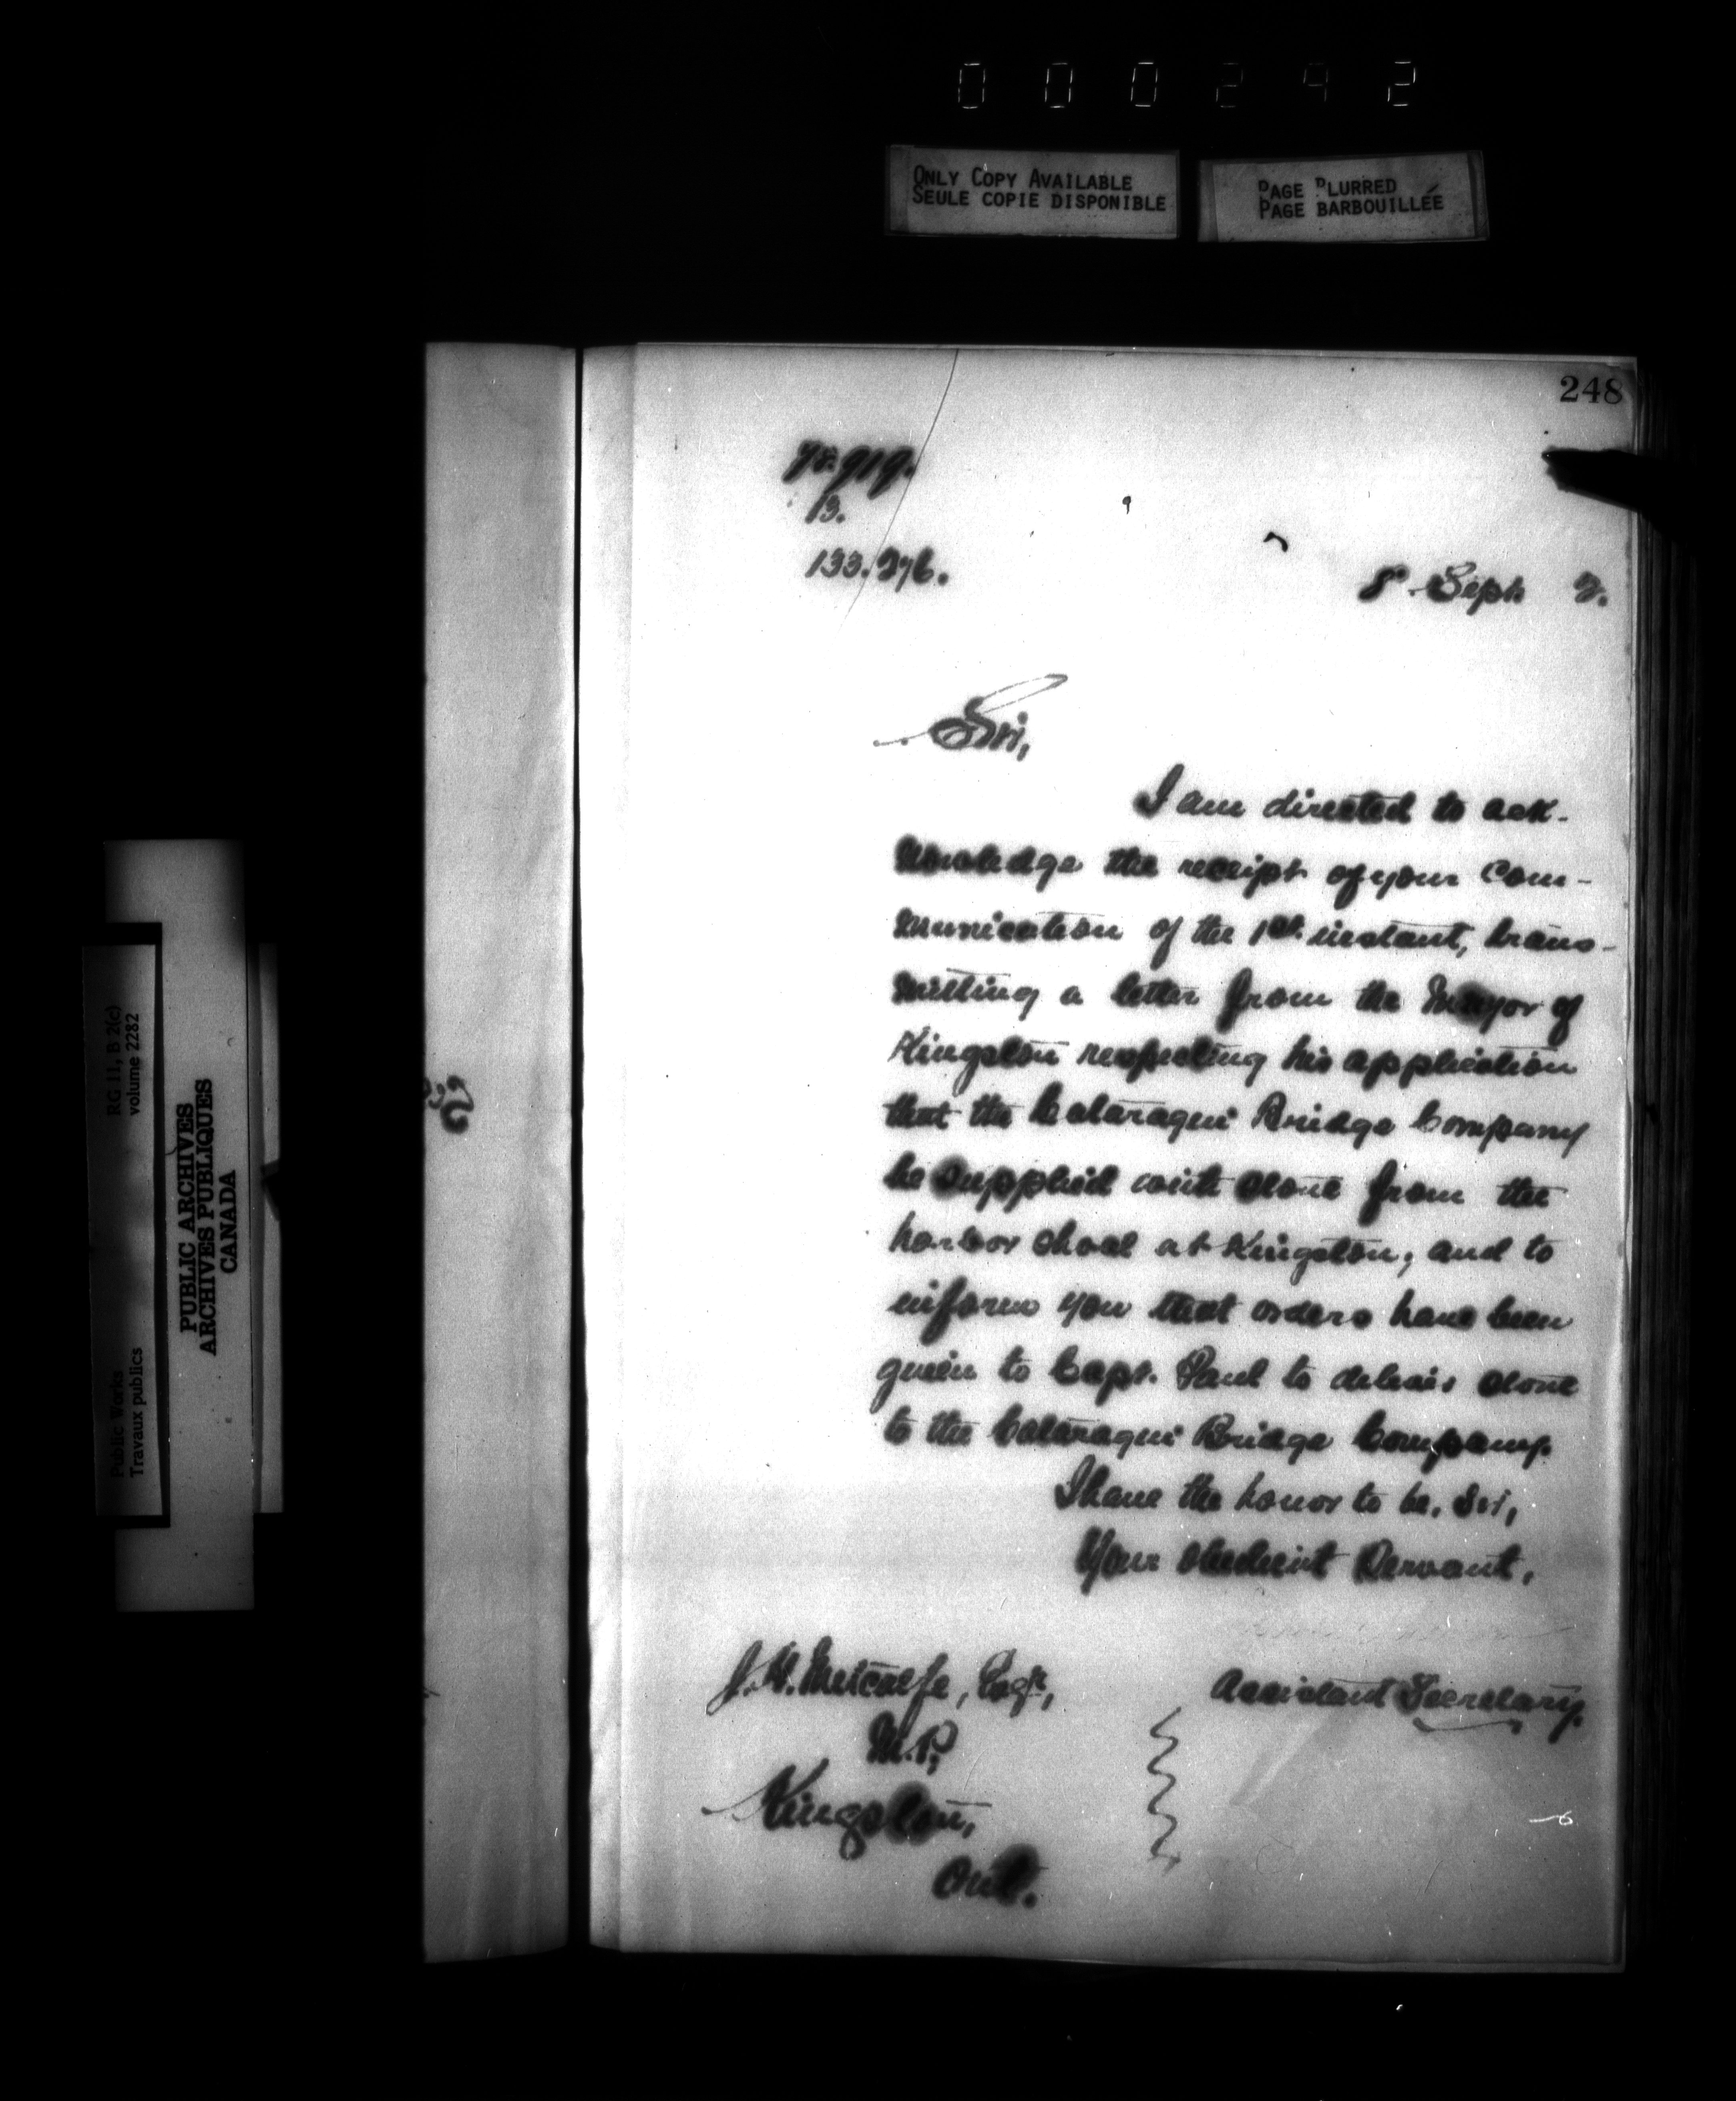 000242
ONLY COPY AVAILABLE
SEULE COPIE DISPONIBLE
PAGE BLURRED
PAGE BARBOUILLÉE
248
13.
133.276.
8 Sept. 2.
Sir,
I am directed to ack-
nowledge the receipt of your Com-
munication of the 1st. instant, trans-
mitting a letter from the Mayor of
Kingston respecting his application
that the Cataraqui Bridge Company
be supplied with stone from the
harbor shoal at Kingston, and to
inform you that orders have been
given to Capt. Paul to deliver stone
to the Cataraqui Bridge Company.
I have the honor to be, Sir,
Your obedient Servant,
Assistant Secretary.
J. H. Metcalfe, Esqr,
M.P.,
Kingston,
Ont.
RG 11, B 2(c)
volume 2282
Public Works
Travaux publics
PUBLIC ARCHIVES
ARCHIVES PUBLIQUES
CANADA